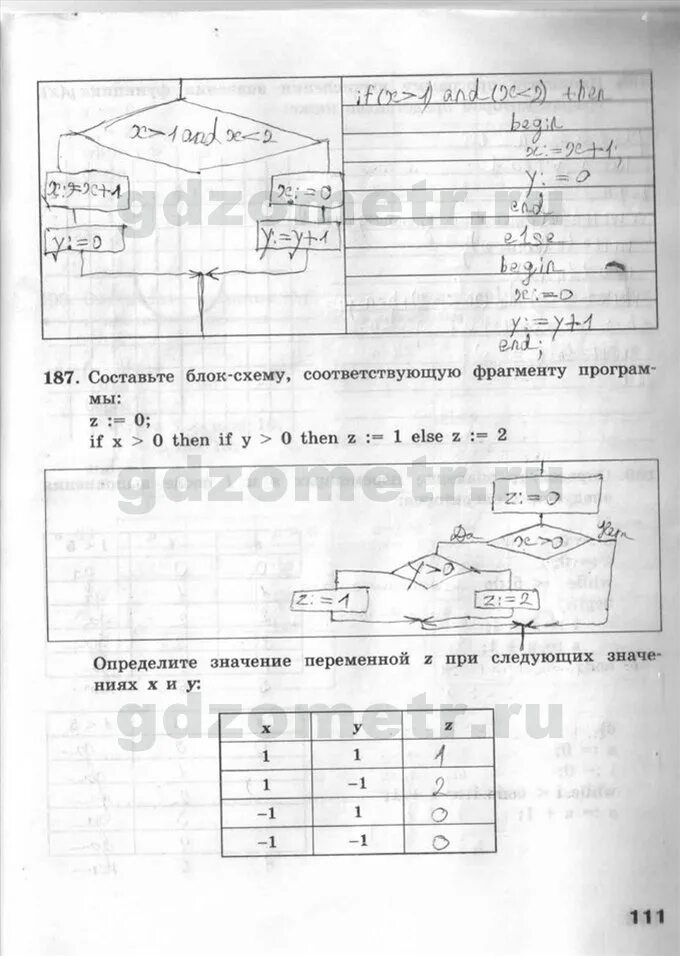 x>1 and x<2
x:=x+1
x:=0
y:=0
y:=y+1
if (x>1) and (x<2) then
begin
x:=x+1;
y:=0
end
else
begin
x:=0
y:=y+1
end;
gdzometr.ru
187. Составьте блок-схему, соответствующую фрагменту програм-
мы:
z := 0;
if x > 0 then if y > 0 then z := 1 else z := 2
gdzometr.ru
z:=0
Да
x>0
Нет
y>0
z:=1
z:=2
Определите значение переменной z при следующих значе-
ниях x и y:
gdzometr.ru
x y z
1 1 1
1 -1 2
-1 1 0
-1 -1 0
111